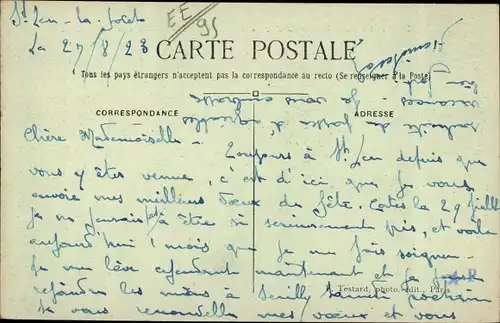 St Leu-la-forêt
La 27/8/23
EE
95
CARTE POSTALE
Tous les pays étrangers n'acceptent pas la correspondance au recto (Se renseigner à la Poste)
CORRESPONDANCE
ADRESSE
Chère Mademoiselle -
Toujours à St Leu depuis que
vous y êtes venue, c'est d'ici que je vous
envoie mes meilleurs vœux de fête. Certes le 29 Juillet
je ne pensais pas être si sérieusement pris, et voilà
aujourd'hui 1 mois que je me fais soigner.
Je me lève cependant maintenant et je
rejoindre les miens à samedi prochain
Je vous renouvelle mes vœux et vous
souhaite de
vacances. Je vous embrasse
Testard, photo. édit., Paris